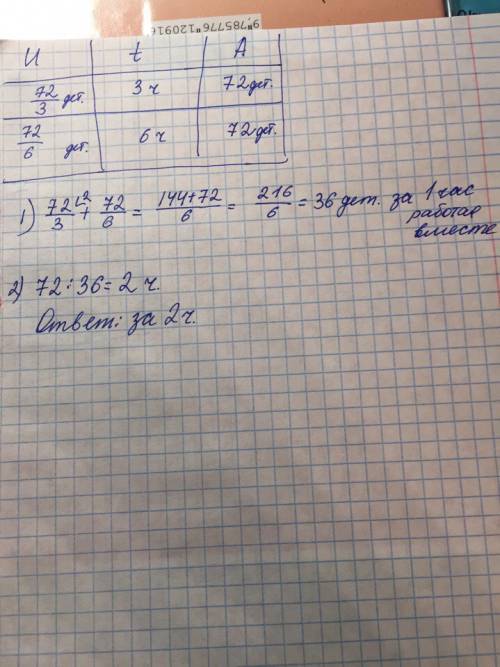 9785776120916
И t A
72/3 дет. 3 ч 72 дет.
72/6 дет. 6 ч 72 дет.
1) 72/3 + 72/6 = 144+72/6 = 216/6 = 36 дет. за 1 час
работая
вместе
2) 72 : 36 = 2 ч.
Ответ: за 2 ч.